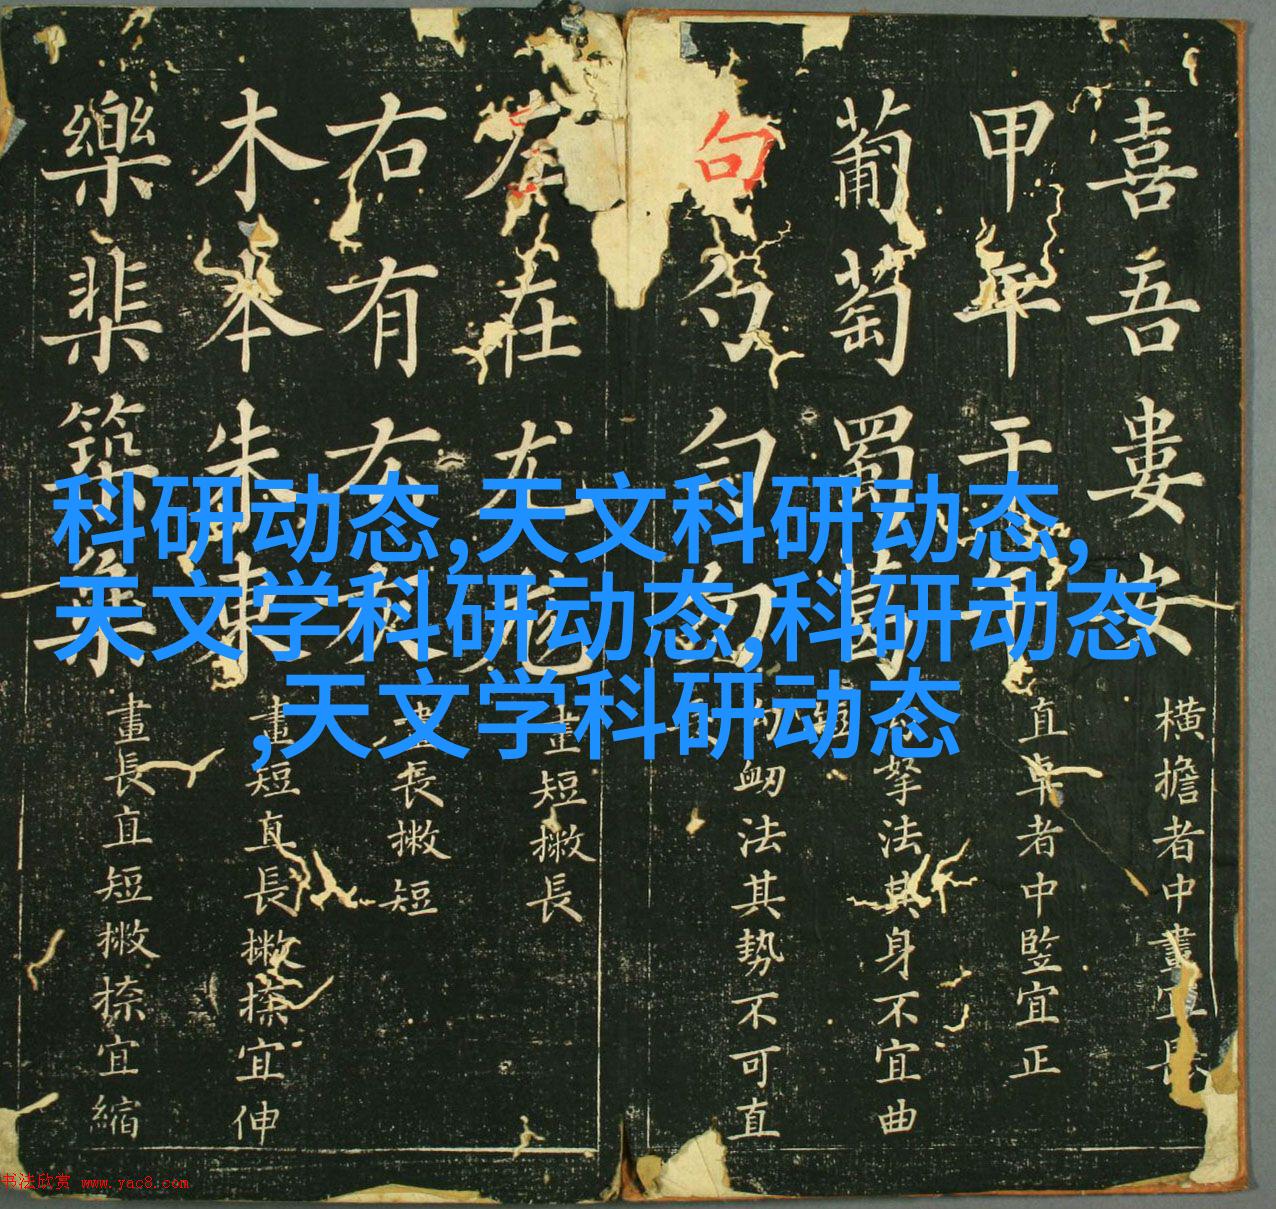 喜吾婁安
横擔者中畫宜
甲平干午
直卓者中竪宜正
葡萄蜀葛
拏法其身不宜曲
句勺勻勿
衂法其勢不可直
左在尤尨
畫短撇長
右有
畫長撇短
木本朱東
畫短直長撇捺宜伸
樂棐築集
畫長直短撇捺宜縮
科研动态,天文科研动态,
天文学科研动态,科研动态
,天文学科研动态
书法欣赏 www.yac8.com